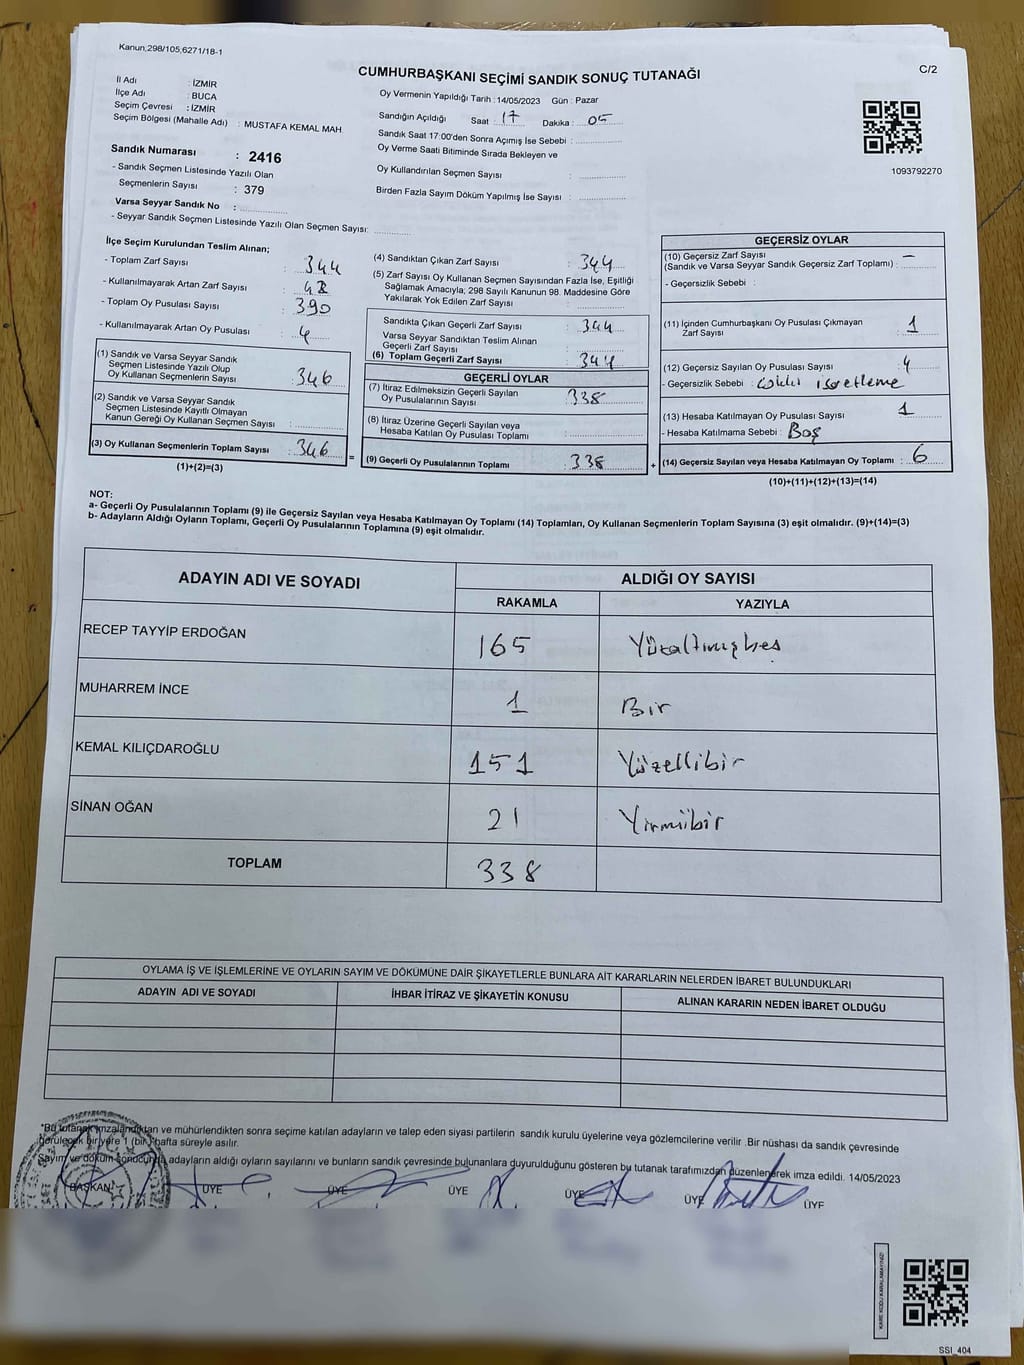 Kanun;298/105,6271/18-1
CUMHURBAŞKANI SEÇİMİ SANDIK SONUÇ TUTANAĞI
C/2
İl Adı : İZMİR
İlçe Adı : BUCA
Seçim Çevresi : İZMİR
Seçim Bölgesi (Mahalle Adı) : MUSTAFA KEMAL MAH.
Sandık Numarası : 2416
- Sandık Seçmen Listesinde Yazılı Olan
Seçmenlerin Sayısı : 379
Varsa Seyyar Sandık No :
- Seyyar Sandık Seçmen Listesinde Yazılı Olan Seçmen Sayısı:
Oy Vermenin Yapıldığı Tarih : 14/05/2023 Gün : Pazar
Sandığın Açıldığı Saat : 17 Dakika : 05
Sandık Saat 17:00'den Sonra Açımış İse Sebebi :
Oy Verme Saati Bitiminde Sırada Bekleyen ve
Oy Kullandırılan Seçmen Sayısı :
Birden Fazla Sayım Döküm Yapılmış İse Sayısı :
1093792270
İlçe Seçim Kurulundan Teslim Alınan;
- Toplam Zarf Sayısı : 344
- Kullanılmayarak Artan Zarf Sayısı :
- Toplam Oy Pusulası Sayısı : 390
- Kullanılmayarak Artan Oy Pusulası : 4
(1) Sandık ve Varsa Seyyar Sandık
Seçmen Listesinde Yazılı Olup
Oy Kullanan Seçmenlerin Sayısı : 346
(2) Sandık ve Varsa Seyyar Sandık
Seçmen Listesinde Kayıtlı Olmayan
Kanun Gereği Oy Kullanan Seçmen Sayısı :
(3) Oy Kullanan Seçmenlerin Toplam Sayısı : 346
(1)+(2)=(3)
(4) Sandıktan Çıkan Zarf Sayısı : 344
(5) Zarf Sayısı Oy Kullanan Seçmen Sayısından Fazla İse, Eşitliği
Sağlamak Amacıyla; 298 Sayılı Kanunun 98. Maddesine Göre
Yakılarak Yok Edilen Zarf Sayısı
Sandıkta Çıkan Geçerli Zarf Sayısı : 344
Varsa Seyyar Sandıktan Teslim Alınan
Geçerli Zarf Sayısı :
(6) Toplam Geçerli Zarf Sayısı : 344
GEÇERLİ OYLAR
(7) İtiraz Edilmeksizin Geçerli Sayılan
Oy Pusulalarının Sayısı : 338
(8) İtiraz Üzerine Geçerli Sayılan veya
Hesaba Katılan Oy Pusulası Toplamı :
= (9) Geçerli Oy Pusulalarının Toplamı : 338 +
GEÇERSİZ OYLAR
(10) Geçersiz Zarf Sayısı
(Sandık ve Varsa Seyyar Sandık Geçersiz Zarf Toplamı) : —
- Geçersizlik Sebebi :
(11) İçinden Cumhurbaşkanı Oy Pusulası Çıkmayan
Zarf Sayısı : 1
(12) Geçersiz Sayılan Oy Pusulası Sayısı : 4
- Geçersizlik Sebebi : işaretleme
(13) Hesaba Katılmayan Oy Pusulası Sayısı 1
- Hesaba Katılmama Sebebi : Boş
(14) Geçersiz Sayılan veya Hesaba Katılmayan Oy Toplamı : 6
(10)+(11)+(12)+(13)=(14)
NOT:
a- Geçerli Oy Pusulalarının Toplamı (9) ile Geçersiz Sayılan veya Hesaba Katılmayan Oy Toplamı (14) Toplamları, Oy Kullanan Seçmenlerin Toplam Sayısına (3) eşit olmalıdır. (9)+(14)=(3)
b- Adayların Aldığı Oyların Toplamı, Geçerli Oy Pusulalarının Toplamına (9) eşit olmalıdır.
ADAYIN ADI VE SOYADI
ALDIĞI OY SAYISI
RAKAMLA YAZIYLA
RECEP TAYYİP ERDOĞAN 165 Yüzaltmışbeş
MUHARREM İNCE 1 Bir
KEMAL KILIÇDAROĞLU 151 Yüzellibir
SİNAN OĞAN 21 Yirmibir
TOPLAM 338
OYLAMA İŞ VE İŞLEMLERİNE VE OYLARIN SAYIM VE DÖKÜMÜNE DAİR ŞİKAYETLERLE BUNLARA AİT KARARLARIN NELERDEN İBARET BULUNDUKLARI
ADAYIN ADI VE SOYADI İHBAR İTİRAZ VE ŞİKAYETİN KONUSU ALINAN KARARIN NEDEN İBARET OLDUĞU
*Bu tutanak imzalandıktan ve mühürlendikten sonra seçime katılan adayların ve talep eden siyasi partilerin sandık kurulu üyelerine veya gözlemcilerine verilir .Bir nüshası da sandık çevresinde
görülecek bir yere 1 (bir) hafta süreyle asılır.
Sayım ve döküm sonucunda adayların aldığı oyların sayılarını ve bunların sandık çevresinde bulunanlara duyurulduğunu gösteren bu tutanak tarafımızdan düzenlenerek imza edildi. 14/05/2023
BAŞKAN ÜYE ÜYE ÜYE ÜYE ÜYE ÜYE
KARE KODU KARALAMAYINIZ!
SSI_404